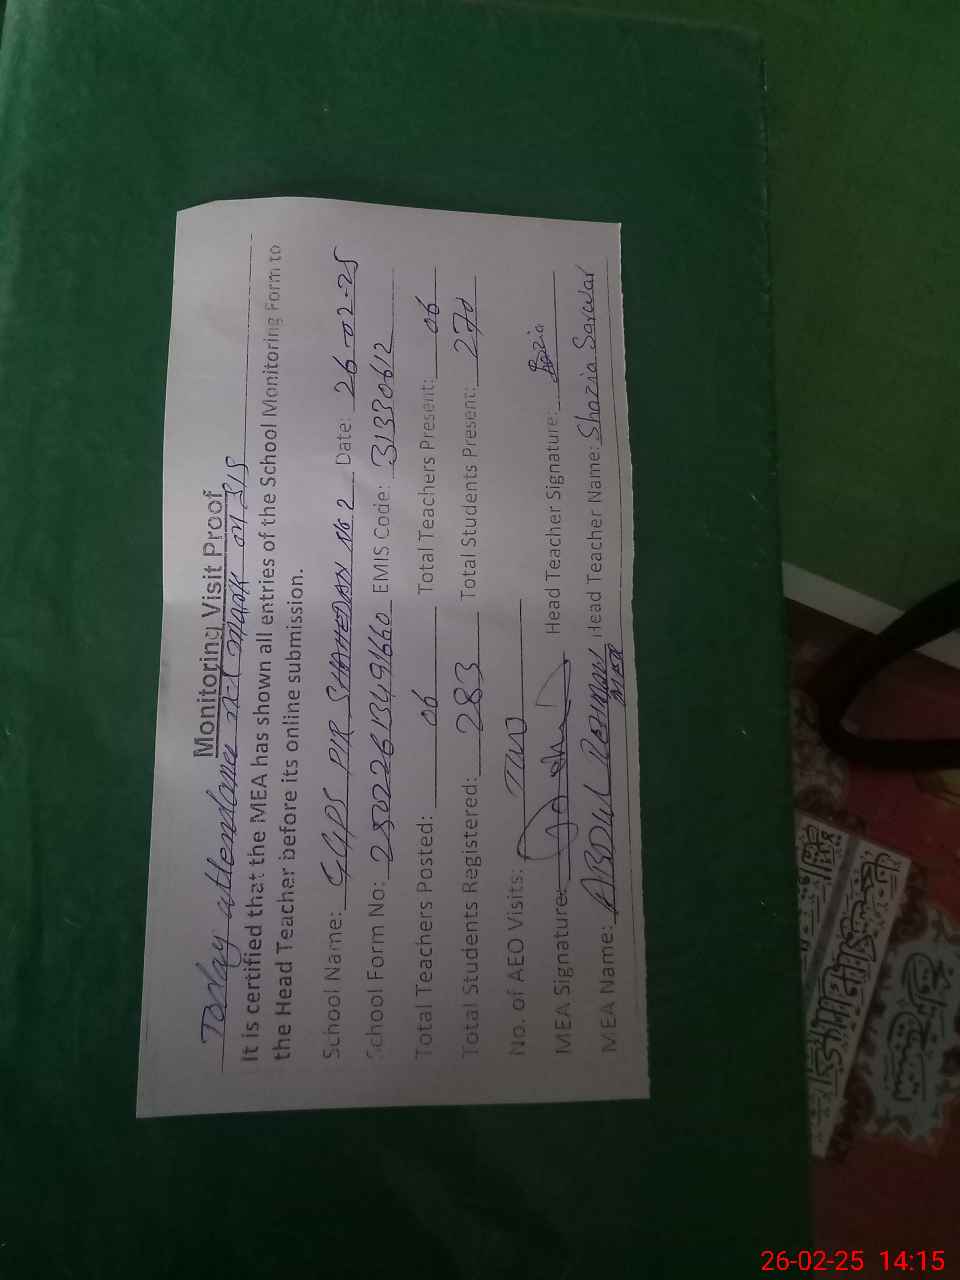 Monitoring Visit Proof
Today attendance not mark on SIS
It is certified that the MEA has shown all entries of the School Monitoring Form to
the Head Teacher before its online submission.
School Name: GGPS PIR SHAHEDAN No 2 Date: 26-02-25
School Form No: 25022613491660 EMIS Code: 31330612
Total Teachers Posted: 06 Total Teachers Present: 06
Total Students Registered: 283 Total Students Present: 270
No. of AEO Visits: Two
MEA Signature: Head Teacher Signature:
MEA Name: ABDUL REHMAN MEA Head Teacher Name: Shazia Sarwar
26-02-25 14:15